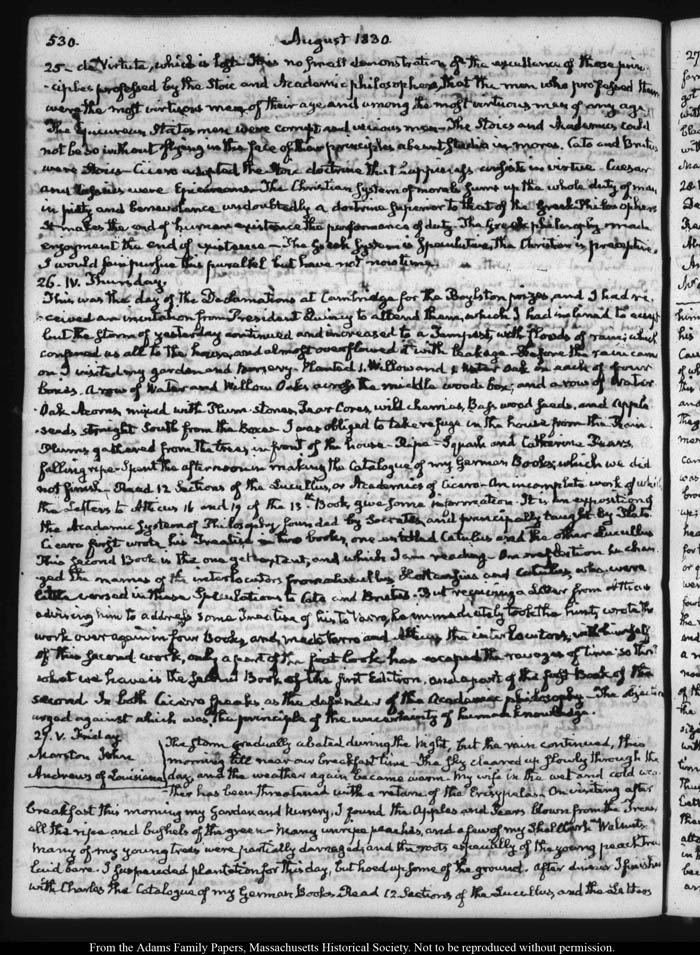 530. August 1830.
25- de Virtute, which is lost. It is no small demonstration of the excellence of those prin-
-ciples professed by the Stoic and Academic philosophers, that the men who professed them
were the most virtuous men of their age and among the most virtuous men of any age.
The Epicurean Statesmen were corrupt and vicious men- The Stoics and Academics could
not be so without flying in the face of their principles abeunt studia in mores. Cato and Brutus
were Stoics- Cicero adopted the Stoic doctrine that happiness consists in virtue. Caesar
and Cassius were Epicureans- The Christian System of morals sums up the whole duty of man
in piety and benevolence undoubtedly a doctrine superior to that of the Greek Philosophers
It makes the end of human existence the performance of duty- The Greek philosophy made
enjoyment the end of existence- The Greek System is Speculative, the Christian is preceptive.
I would fain pursue this parallel but have not now time.
26. IV. Thursday.
This was the day of the Declamations at Cambridge for the Boylston prizes, and I had re-
-ceived an invitation from President Quincy to attend them, which I had inclined to accept
but the Storm of yesterday continued and increased to a Tempest, with floods of rain; which
confined us all to the house, and almost overflowed it with leakage- Before the rain came
on I visited my garden and Nursery- Planted 1. Willow and 1 Water Oak in each of four
boxes. A row of Water and Willow Oaks across the middle wooden box; and a row of Water
-Oak Acorns, mixed with Plum-stones, Pear Cores, wild cherries, Bass wood seeds, and Apple
-seeds straight South from the Boxes- I was obliged to take refuge in the house from the Rain.
Plums gathered from the trees in front of the house- Ripe- Squash and Catherine Pears
falling ripe- Spent the afternoon in making the Catalogue of my German Books, which we did
not finish- Read 12 Sections of the Lucullus, or Academics of Cicero- An incomplete work of which
the Letters to Atticus 16 and 19 of the 13th Book, give some information- It is an exposition of
the Academic System of Philosophy founded by Socrates, and principally taught by Plato
Cicero first wrote his Treatise in two books, one entitled Catulus and the other Lucullus
This second Book is the one yet extant, and which I am reading- On reflection he chan-
-ged the names of the interlocutors from Lucullus, Hortensius and Catulus, who were
little versed in these Speculations to Cato and Brutus- But receiving a Letter from Atticus
advising him to address some Treatise of his to Varro, he immediately took the hint, wrote the
work over again in four Books, and made Varro and Atticus the interlocutors, with himself
of this second work, only a part of the first book has escaped the ravages of time so that
what we have is the second Book of the first Edition, and a part of the first Book of the
second. In both Cicero speaks as the defender of the Academic philosophy- The objection
urged against which was the principle of the uncertainty of human knowledge.
27. V. Friday
Marston John
Andrews of Louisiana
The Storm gradually abated during the Night, but the rain continued, this
morning till near our breakfast time- The sky cleared up slowly through the
day, and the weather again became warm- My wife in the wet and cold wea-
-ther has been threatened with a return of the Erysypelas- On visiting after
breakfast this morning my Garden and Nursery, I found the Apples and Pears blown from the Trees,
all the ripe and bushels of the green- Many unripe peaches, and a few of my Shellbark Walnuts
many of my young trees were partially damaged, and the roots especially of the young peach trees
laid bare. I suspended plantation for this day, but hoed up some of the ground. After dinner I finished
with Charles the Catalogue of my German Books- Read 12 Sections of the Lucullus, and the Letters
From the Adams Family Papers, Massachusetts Historical Society. Not to be reproduced without permission.